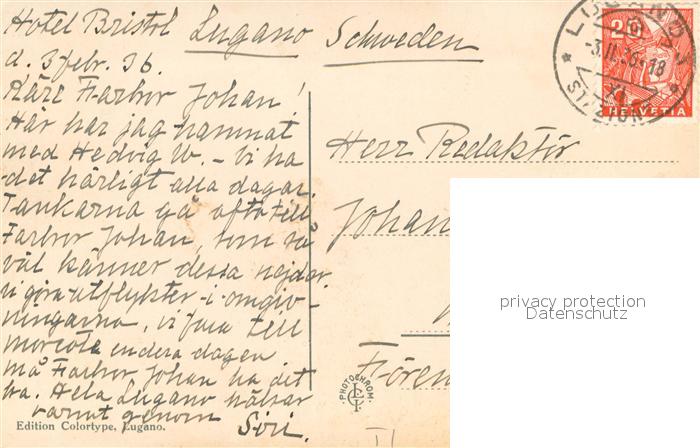 Hotel Bristol Lugano
d. 3 febr. 36.
Käre Farbror Johan!
Här har jag hamnat
med Hedvig W. – Vi ha
det härligt alla dagar.
Tankarna gå ofta till
Farbror Johan, som så
väl känner dessa nejder.
Vi göra utflykter i omgiv-
ningarna, vi fara till
Morcote endera dagen
Må Farbror Johan ha det
bra. Hela Lugano hälsar
varmt genom
Siri.
Edition Colortype, Lugano.
Schweden
Herr Redaktör
Johan
Fören
LUGANO 1
3.II.36-18
20
HELVETIA
PHOTOCHROM
privacy protection
Datenschutz